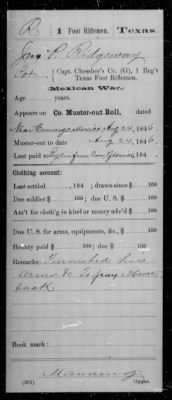 R 1 Foot Riflemen. Texas.
Jno P. Ridgeway
Pvt., Capt. Chessher's Co. (G), 1 Reg't
Texas Foot Riflemen.
Mexican War.
Age years.
Appears on Co. Muster-out Roll, dated
Near Camargo Mexico, Aug 24, 1846.
Muster-out to date Aug 24, 1846.
Last paid , 184 .
Clothing account:
Last settled , 184 ; drawn since $ 100
Due soldier $ 100; due U. S. $ 100
Am't for cloth'g in kind or money adv'd $ 100
Due U. S. for arms, equipments, &c., $ 100
Bounty paid $ 100; due $ 100
Remarks: Furnished his
arms &c
sack
Book mark:
Manning
(362) Copyist.